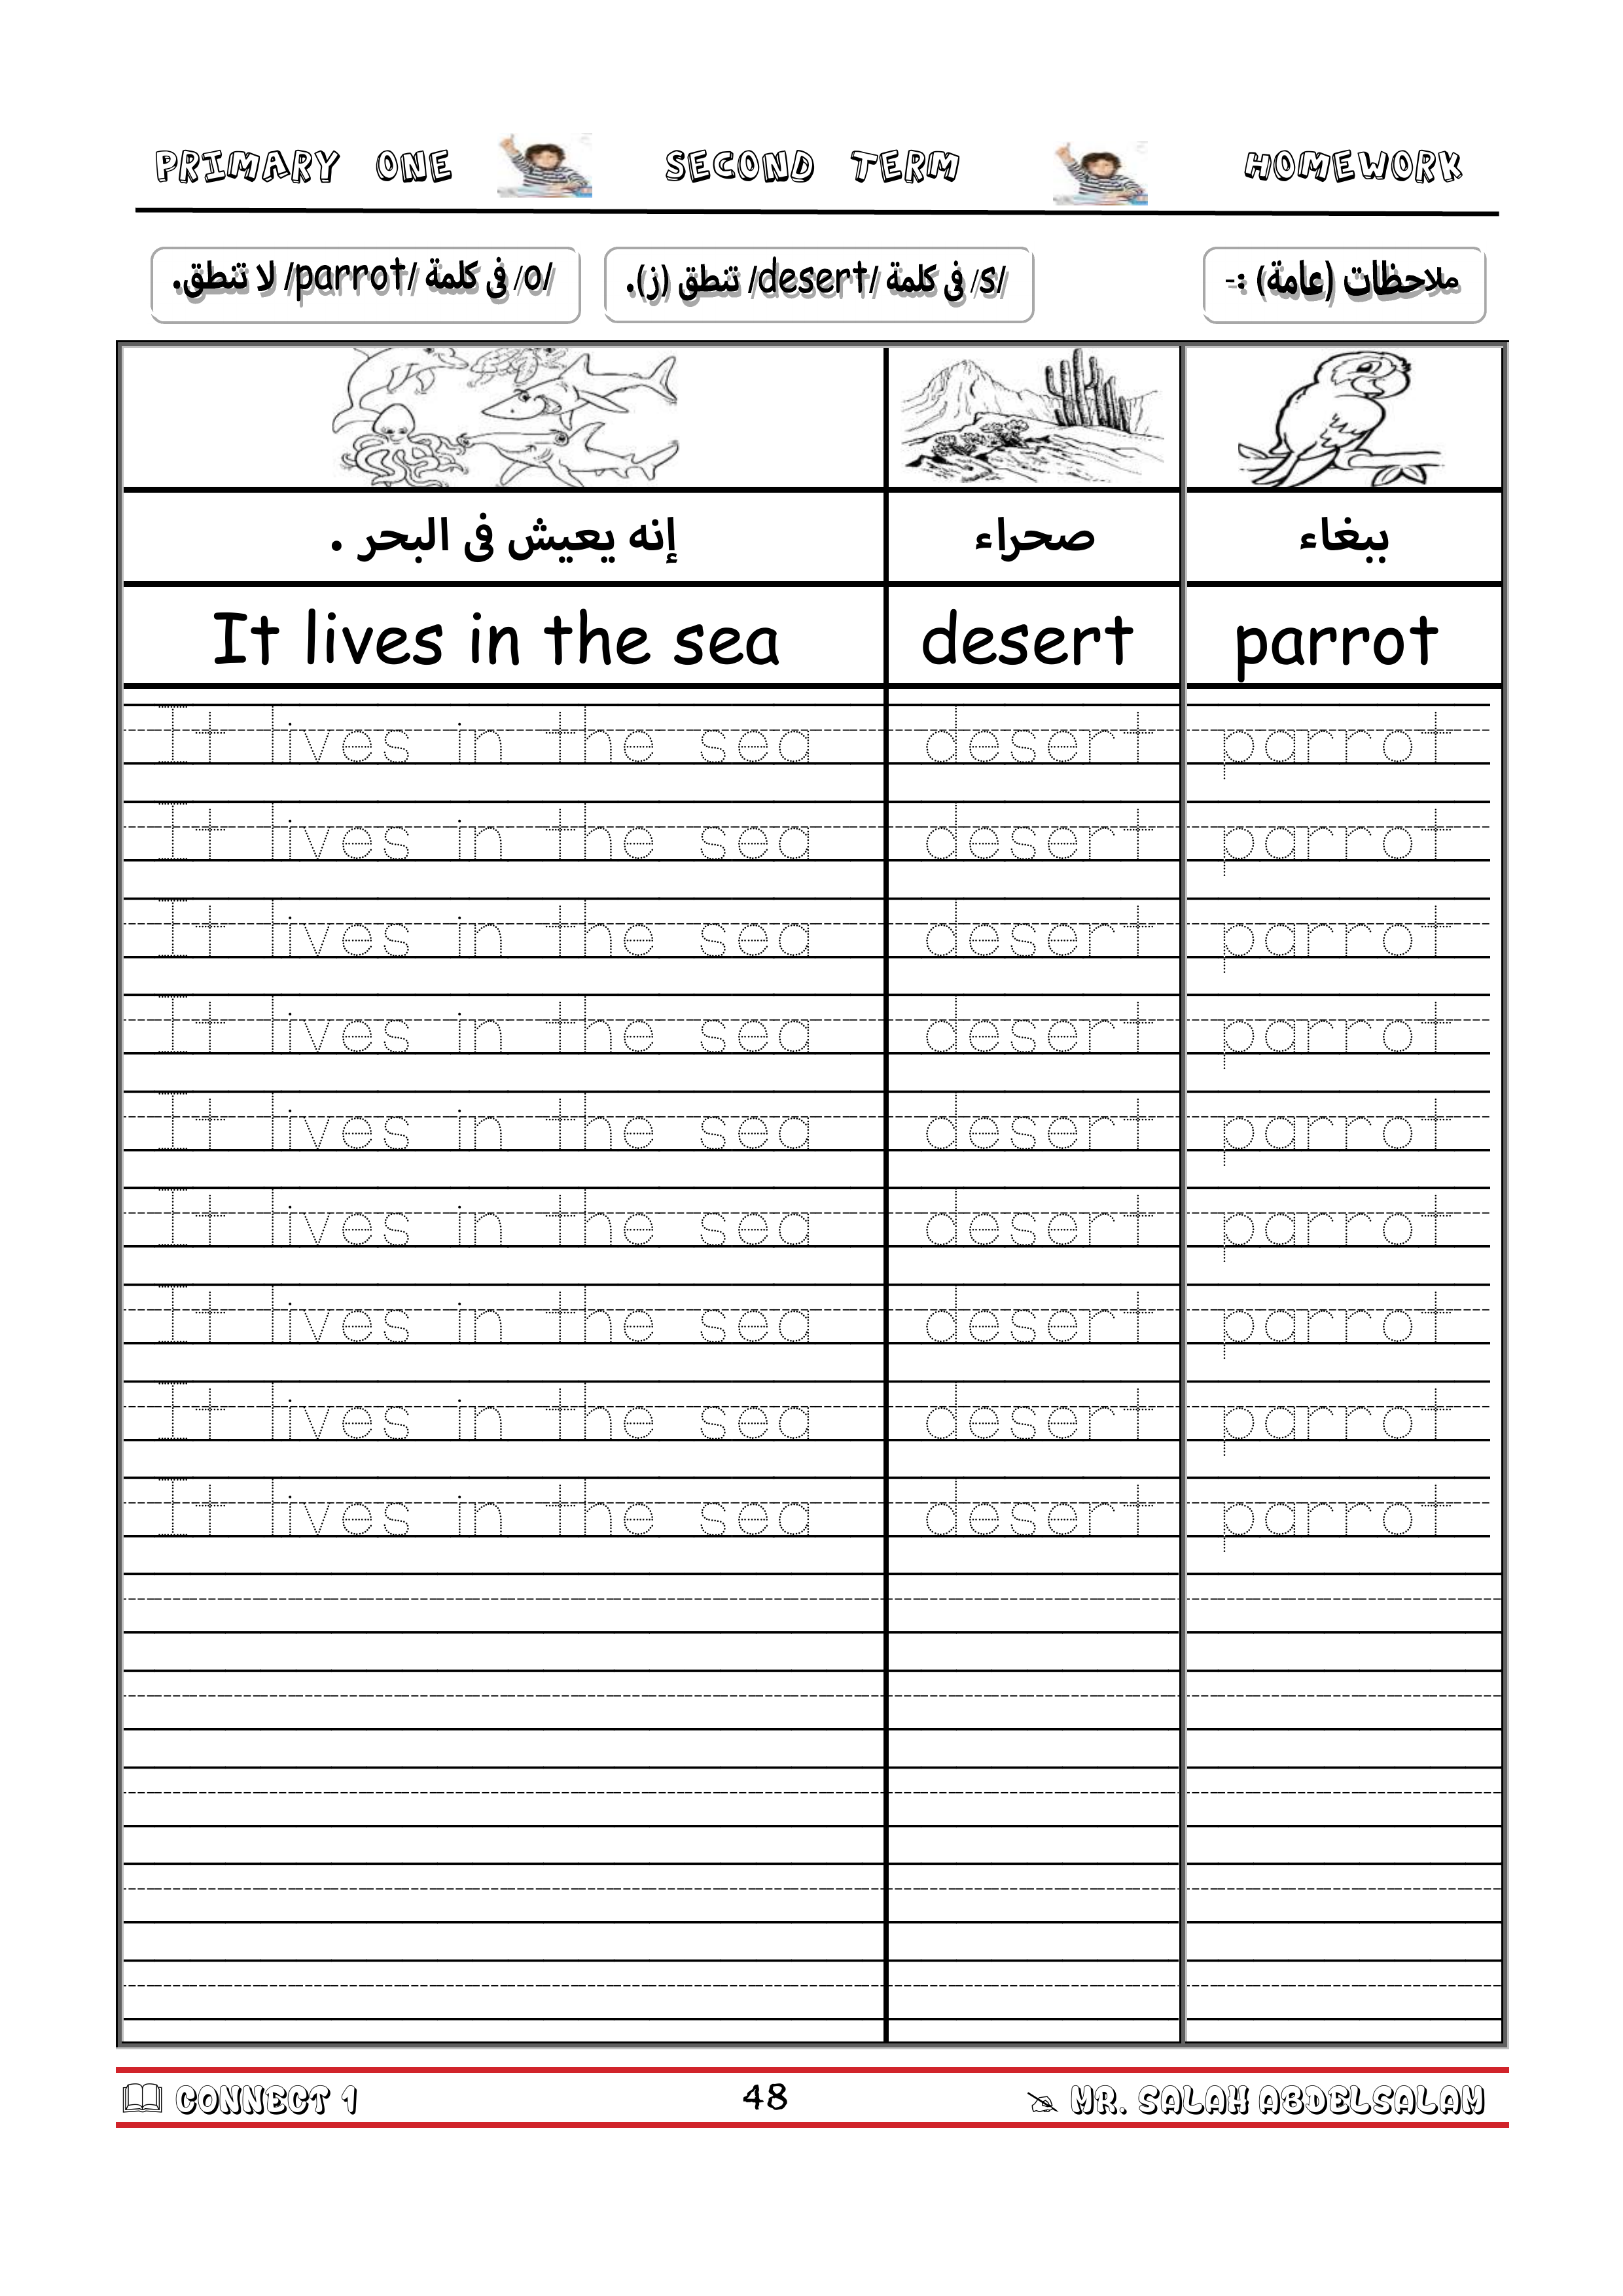 PRIMARY ONE SECOND TERM HOMEWORK
ملاحظات (عامة) :-
/s/ فى كلمة /desert/ تنطق (ز).
/o/ فى كلمة /parrot/ لا تنطق.
إنه يعيش فى البحر . صحراء ببغاء
It lives in the sea desert parrot
It lives in the sea desert parrot
It lives in the sea desert parrot
It lives in the sea desert parrot
It lives in the sea desert parrot
It lives in the sea desert parrot
It lives in the sea desert parrot
It lives in the sea desert parrot
It lives in the sea desert parrot
It lives in the sea desert parrot
CONNECT 1 48 MR. SALAH ABDELSALAM